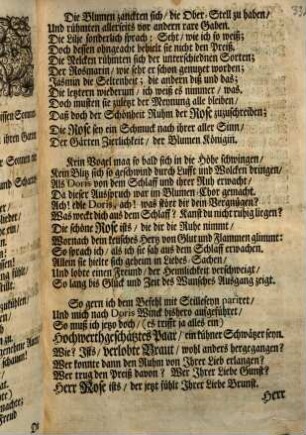 Die Blumen zanckten sich / die Ober-Stell zu haben /
Und rühmten allerseits vor andern rare Gaben.
Die Lilje sonderlich sprach: Seht / wie ich so weiß;
Doch dessen ohngeacht behielt sie nicht den Preiß.
Die Nelcken rühmten sich der unterschiednen Sorten;
Der Rosmarin / wie sehr er schon genutzet worden;
Jasmin die Seltenheit; die andern diß und das;
Die letztern wiederum / ich weiß es nimmer / was.
Doch musten sie zuletzt der Meynung alle bleiben /
Daß doch der Schönheit Ruhm der Rose zuzuschreiben;
Die Rose sey ein Schmuck nach ihrer aller Sinn /
Der Gärten Zierlichkeit / der Blumen Königin.
Kein Vogel mag so bald sich in die Höhe schwingen /
Kein Blitz sich so geschwind durch Lufft und Wolcken dringen /
Als Doris von dem Schlaff und ihrer Ruh erwacht /
Da dieser Ausspruch war im Blumen-Chor gemacht.
Ach! edle Doris, ach! was stört dir dein Vergnügen?
Was weckt dich aus dem Schlaff? Kanst du nicht ruhig liegen?
Die schöne Rose ists / die dir die Ruhe nimmt /
Wornach dein keusches Hertz von Glut und Flammen glimmt:
So sprach ich / als ich sie sah aus dem Schlaff erwachen.
Allein sie hielte sich geheim in Liebes-Sachen /
Und lobte einen Freund / der Heimlichkeit verschweigt /
So lang bis Glück und Zeit des Wunsches Ausgang zeigt.
So gern ich dem Befehl mit Stilleseyn pariret /
Und mich nach Doris Winck bishero aufgeführet /
So muß ich jetzo doch / (es trifft ja alles ein)
Hochwerthgeschätztes Paar / ein kühner Schwätzer seyn.
Wie? Ists / verlobte Braut / wohl anders hergegangen?
Wer konnte dann den Ruhm von Ihrer Lieb erlangen?
Wer trug den Preiß davon? Wer Ihrer Liebe Gunst?
Herr Rose ists / der jetzt fühlt Ihrer Liebe Brunst.
Herr